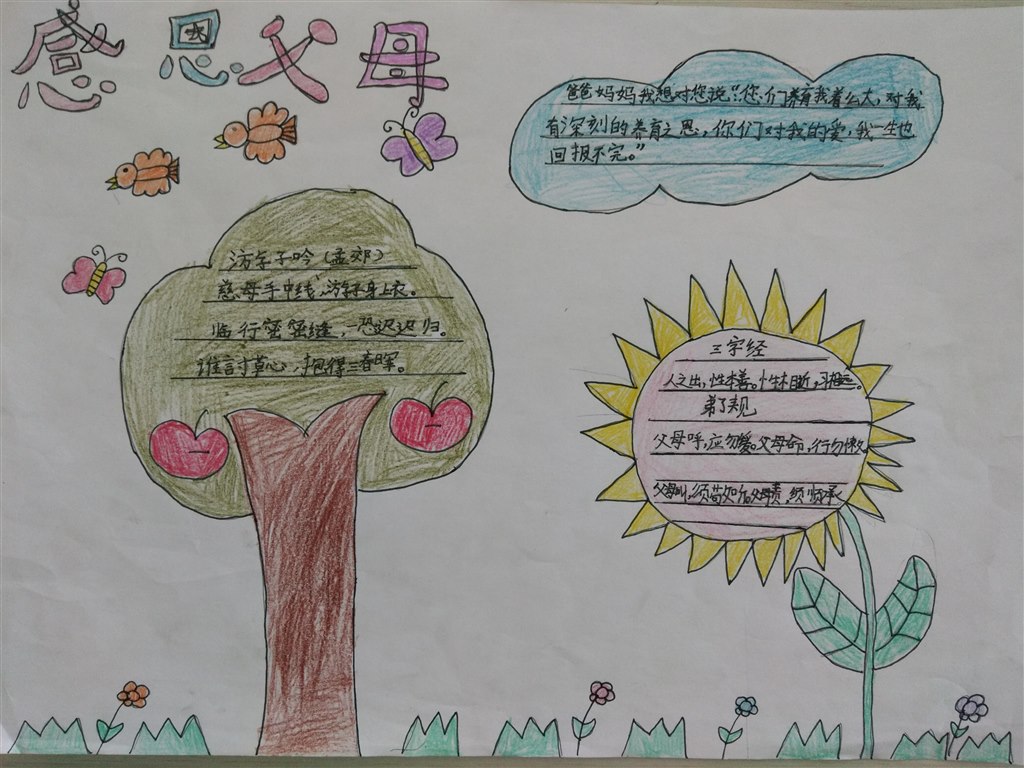 感恩父母
爸爸妈妈我想对您说："您们养育我着么大，对我
有深刻的养育之恩，你们对我的爱，我一生也
回报不完。"
游子吟（孟郊）
慈母手中线，游子身上衣。
临行密密缝，恐迟迟归。
谁言寸草心，报得三春晖。
三字经
人之出，性本善。性相近，习相远。
弟子规
父母呼，应勿缓。父母命，行勿懒
父母叫，须敬听。父母责，须顺承